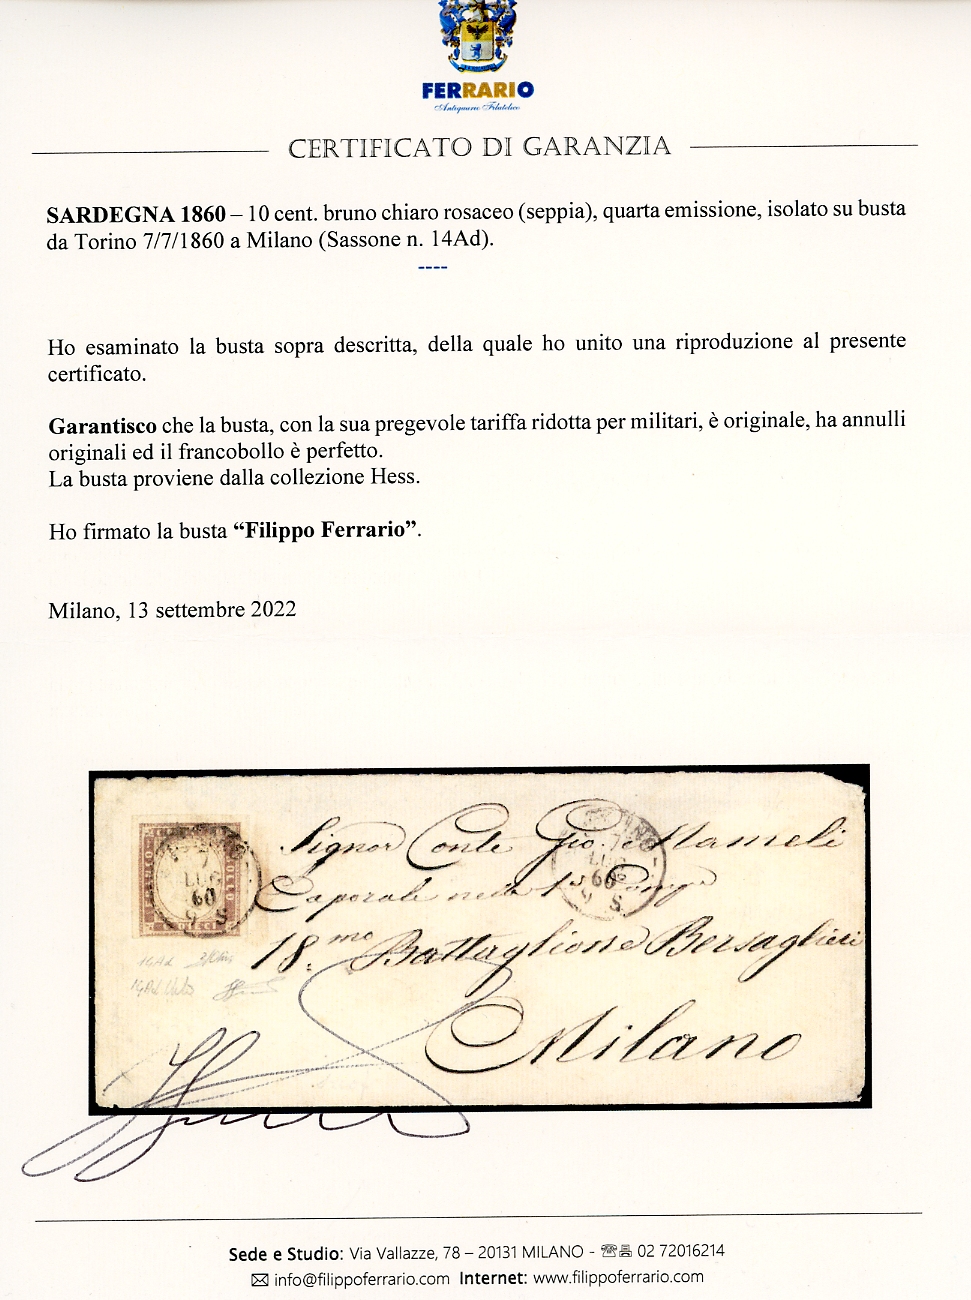 FERRARIO
Antiquario Filatelico
CERTIFICATO DI GARANZIA
SARDEGNA 1860 – 10 cent. bruno chiaro rosaceo (seppia), quarta emissione, isolato su busta
da Torino 7/7/1860 a Milano (Sassone n. 14Ad).
----
Ho esaminato la busta sopra descritta, della quale ho unito una riproduzione al presente
certificato.
Garantisco che la busta, con la sua pregevole tariffa ridotta per militari, è originale, ha annulli
originali ed il francobollo è perfetto.
La busta proviene dalla collezione Hess.
Ho firmato la busta “Filippo Ferrario”.
Milano, 13 settembre 2022
Signor Conte Gio. Mameli
Caporale nella 1ª
18.mo Battaglione Bersaglieri
Milano
7
LUG
60
9 S
LUG
60
9 S
Sede e Studio: Via Vallazze, 78 – 20131 MILANO - 02 72016214
info@filippoferrario.com Internet: www.filippoferrario.com